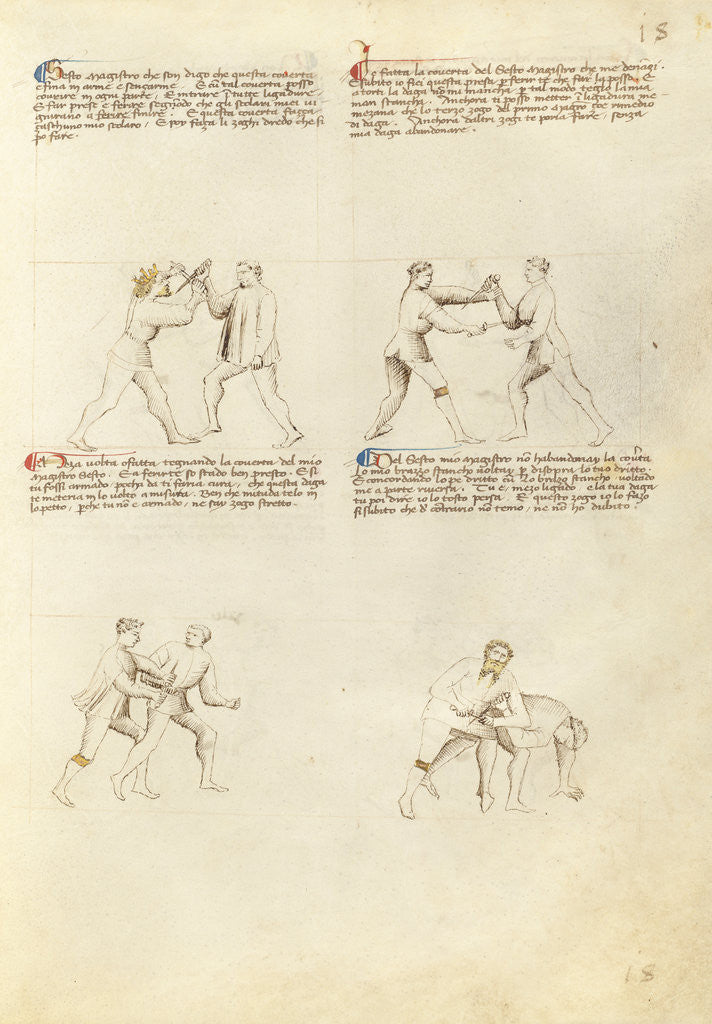 18
Sesto Magistro che son digo che questa coverta
e fina in arme e sença arme. E cum tal coverta posso
covrire in ogni parte. E intrare in tutte ligadure
E far prese e ferire segondo che gli scolari miei vi
gnirano a ferire finire. E questa coverta faça
caschuno mio scolaro. E poy faça li zoghi dredo che si
pò fare.
Io fatta la coverta del Sesto Magistro che me denançi.
E subito io fici questa presa per ferir te che far la posso. E
a torti la daga non mi mancha per tal modo tegno la mia
man stancha. Anchora ti posso metter in ligadura me-
mezana che lo terzo zogo del primo Magistro Re rimedio
di daga. Anchora d'altri zogi te poria fare, senza
mia daga abandonare.
Meza volta o fatta tegnando la coverta del mio
Magistro Sesto. E a ferirte so stado ben presto. E si
tu fossi armado pocha da ti faria cura, che questa daga
te meteria in lo volto a misura. Ben che mituda te lo in
lo petto, perche tu non e armado, ne say zogo stretto.
Del Sesto mio Magistro non habandonay la coverta
Lo mio brazzo stancho voltay per disopra lo tuo dritto.
E concordando lo pe dritto cum Lo brazo stancho, voltado
me a parte riversa. Tu e, mezo ligado, e la tua daga
tu poi dire io lo tosto persa. E questo zogo io lo fazo
si subito che de contrario non temo, ne non ho dubito.
18